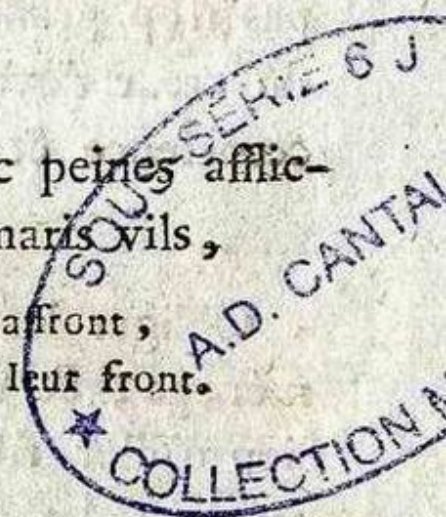 c peines afflic-
maris vils,
affront,
leur front.
SOUS-SÉRIE 6 J
A.D. CANTAL
★ COLLECTION